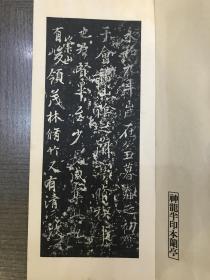 神龍半印本蘭亭
永和九年歲在癸丑暮春之初會
于會稽山陰之蘭亭脩稧事
也羣賢畢至少長咸集此地
有崇山峻領茂林脩竹又有清流激